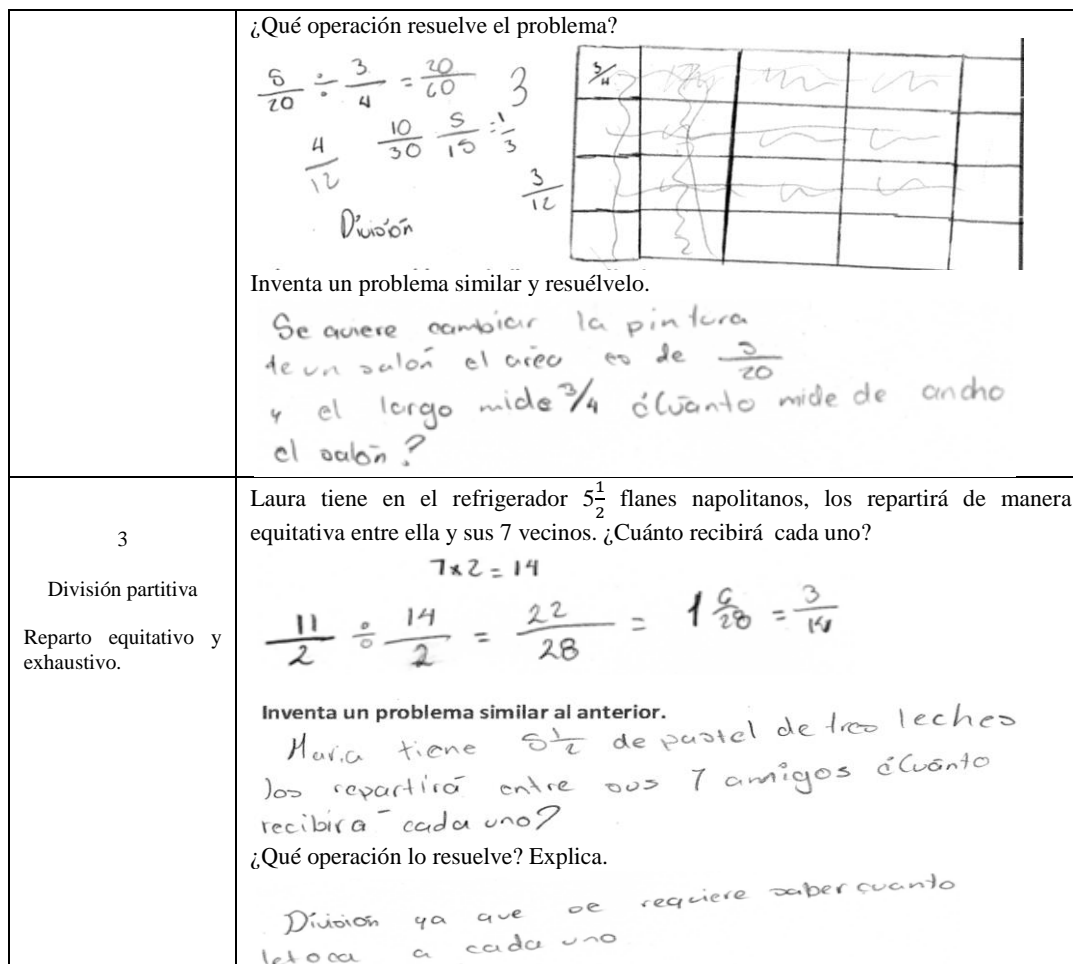 ¿Qué operación resuelve el problema?
5/20 ÷ 3/4 = 20/60 3
4/12 10/30 5/15 = 1/3
3/12
División
3/4
Inventa un problema similar y resuélvelo.
Se quiere cambiar la pintura
de un salón el area es de 5/20
y el largo mide 3/4 ¿Cuánto mide de ancho
el salón?
3
División partitiva
Reparto equitativo y
exhaustivo.
Laura tiene en el refrigerador 5 1/2 flanes napolitanos, los repartirá de manera
equitativa entre ella y sus 7 vecinos. ¿Cuánto recibirá cada uno?
7x2=14
11/2 ÷ 14/2 = 22/28 = 1 6/28 = 3/14
Inventa un problema similar al anterior.
Maria tiene 5 1/2 de pastel de tres leches
los repartirá entre sus 7 amigos ¿Cuánto
recibira cada uno?
¿Qué operación lo resuelve? Explica.
División ya que se requiere saber cuanto
le toca a cada uno